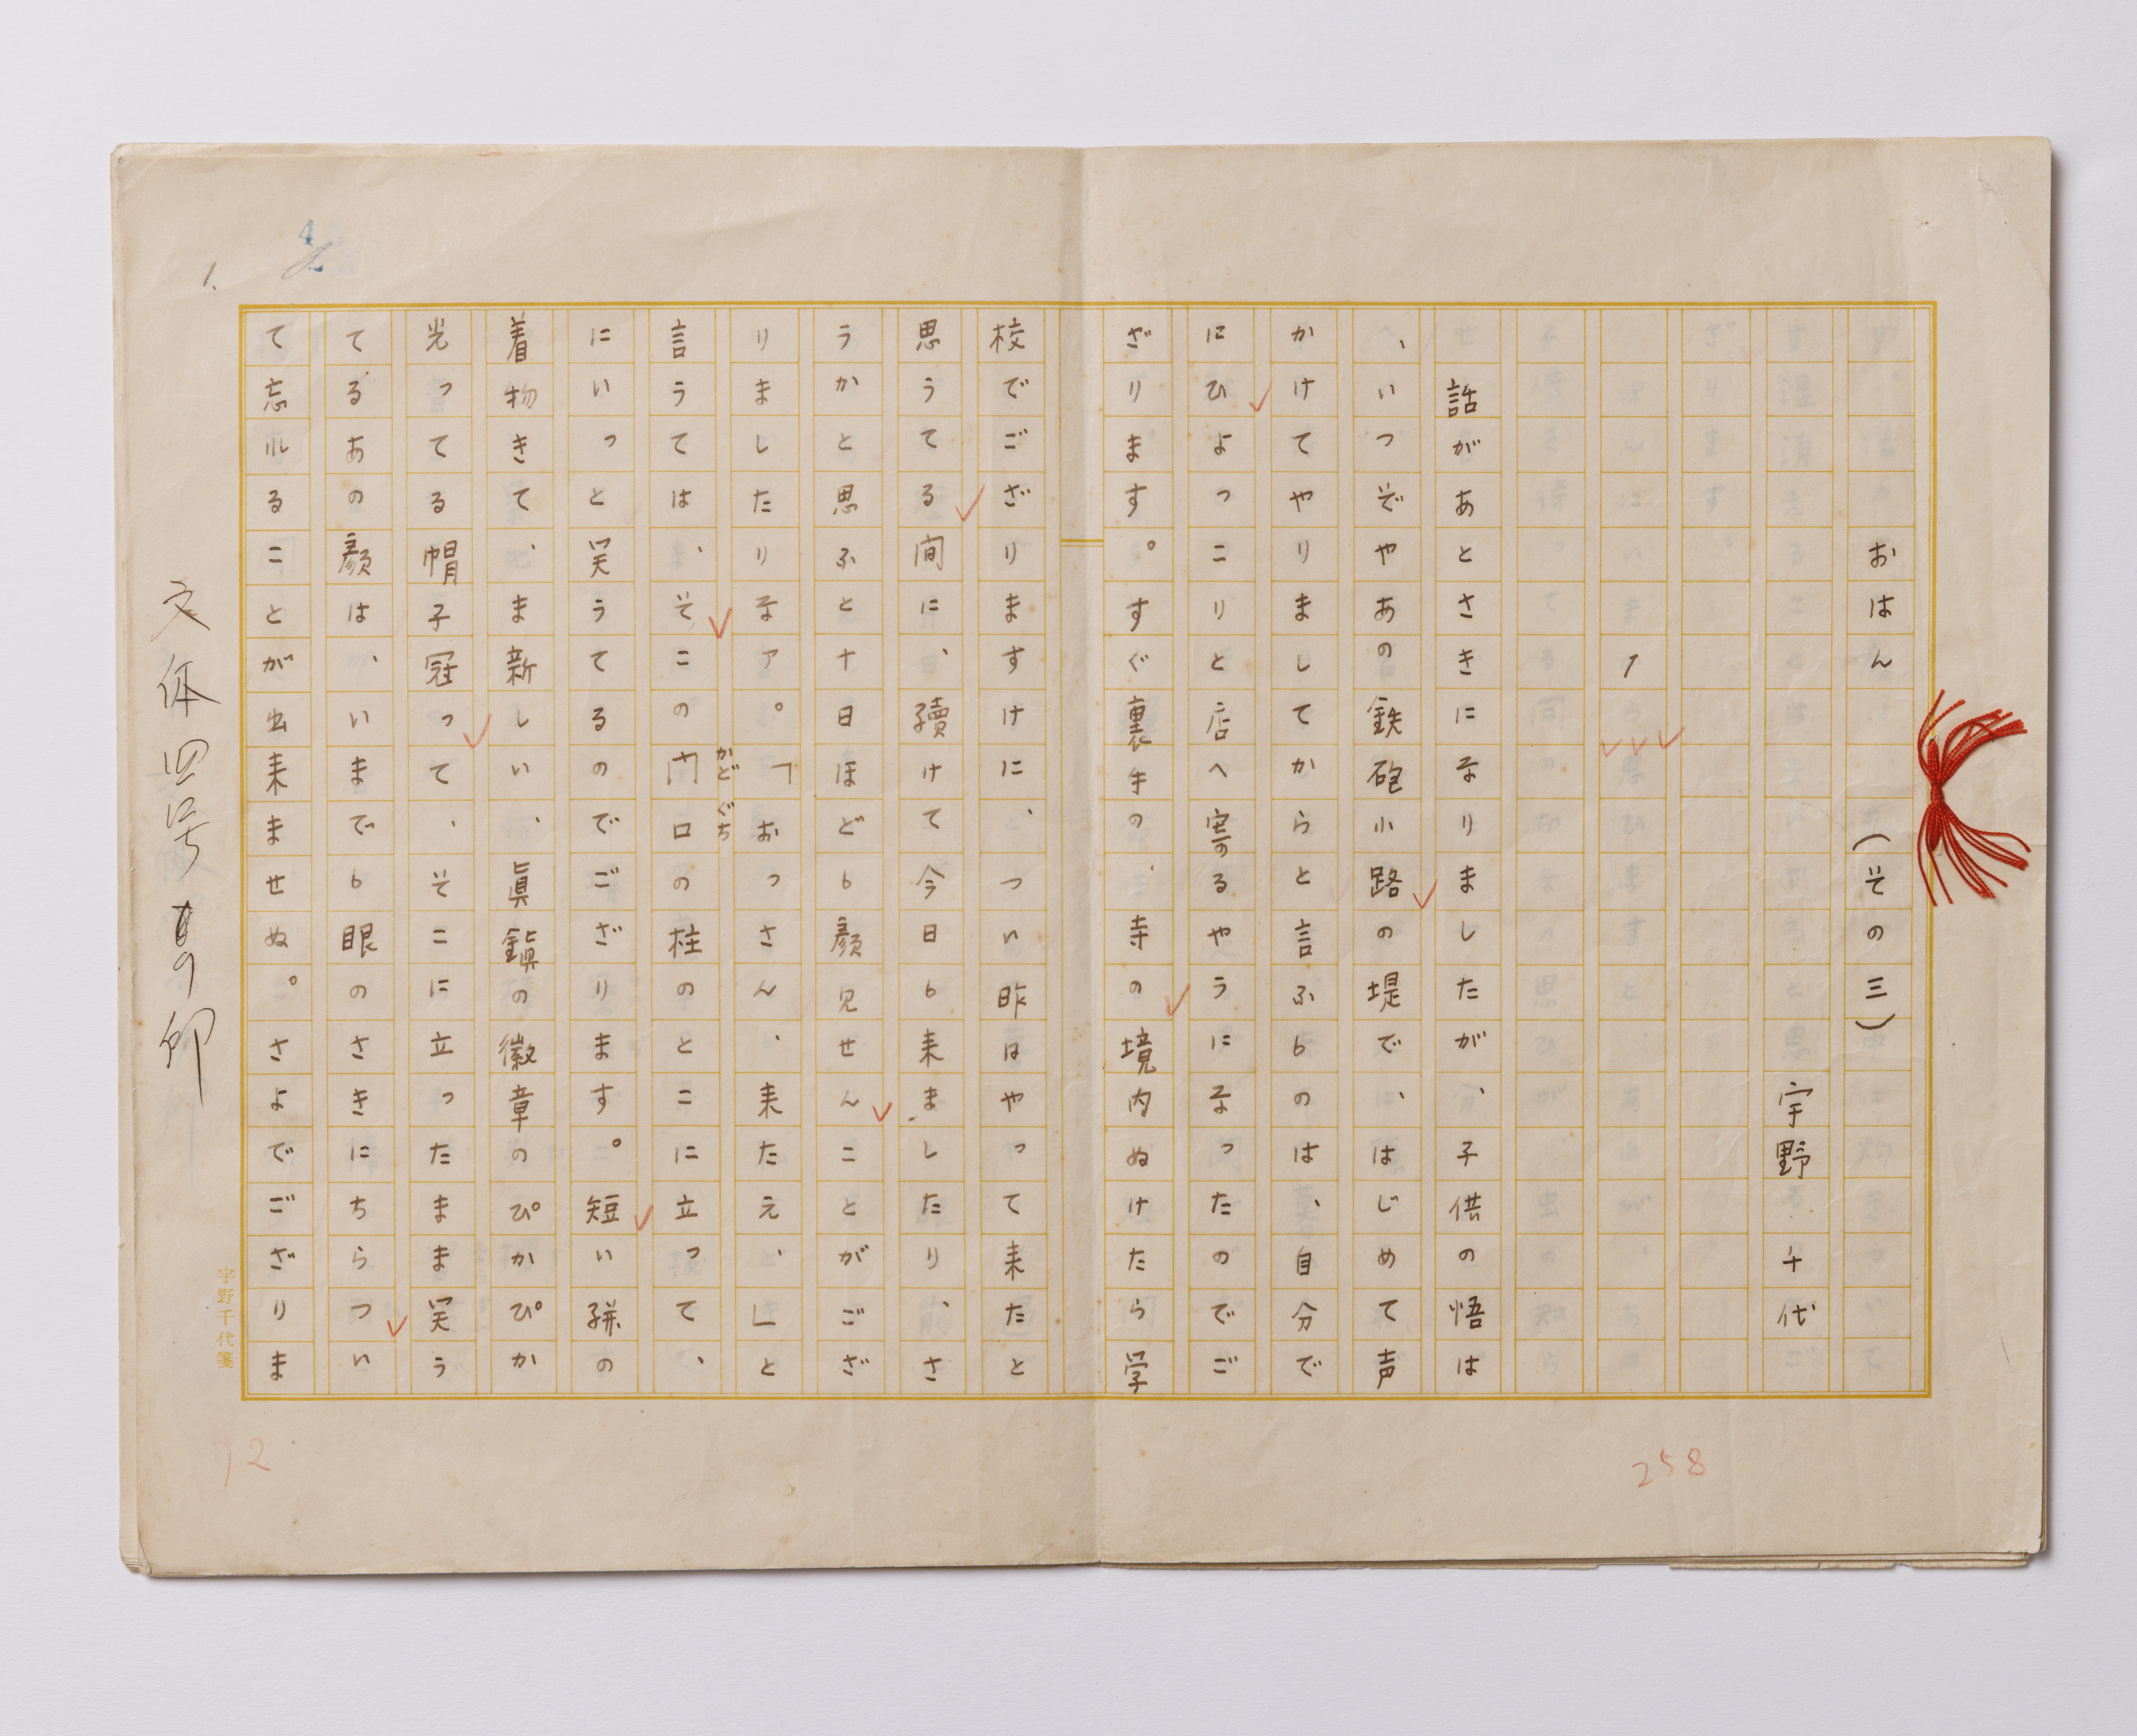 おはん　（その三）
宇野千代
1
話があとさきになりましたが、子供の悟は
、いつぞやあの鉄砲小路の堤で、はじめて声
かけてやりましてからと言ふものは、自分で
にひよっこりと店へ寄るやうになったのでご
ざります。すぐ裏手の、寺の境内ぬけたら学
校でござりますけに、つい昨はやって来たと
思うてる間に、續けて今日も来ましたり、さ
うかと思ふと十日ほども顔見せんことがござ
りましたりなア。「おっさん、来たえ、」と
言うては、そこの門口の柱のとこに立って、
かどぐち
にいっと笑うてるのでござります。短い絣の
着物きて、ま新しい、眞鍮の徽章のぴかぴか
光ってる帽子冠って、そこに立ったまま笑う
てるあの顔は、いまでも眼のさきにちらつい
て忘れることが出来ませぬ。さよでござりま
文体四号
宇野千代箋
1.
4
12
258